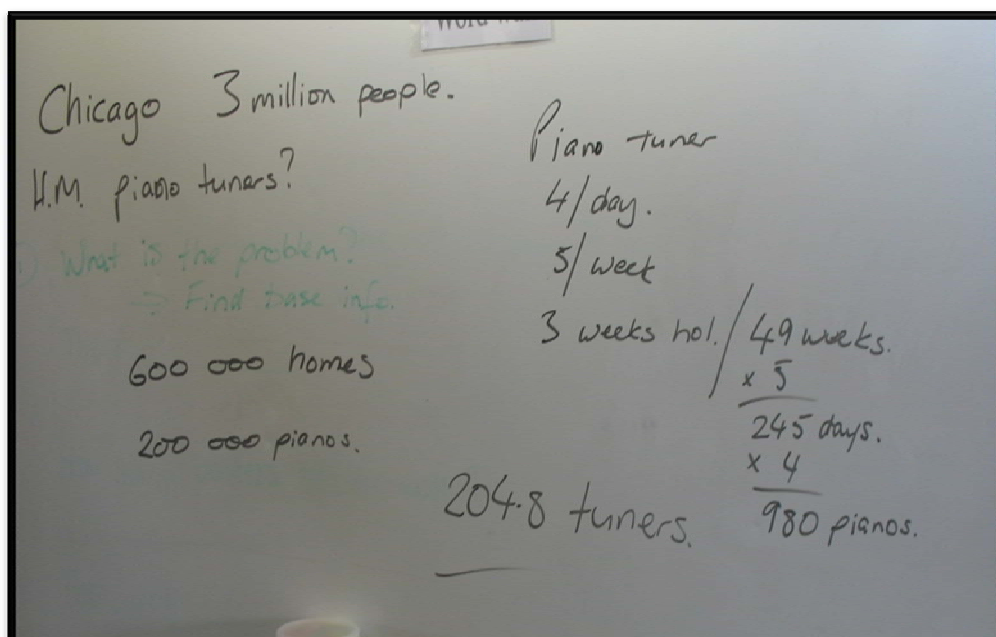 Chicago 3 million people.
H.M. piano tuners?
What is the problem?
⇒ Find base info.
600 000 homes
200 000 pianos.
Piano tuner
4/day.
5/week
3 weeks hol. / 49 weeks.
x 5
245 days.
x 4
980 pianos.
204.8 tuners.